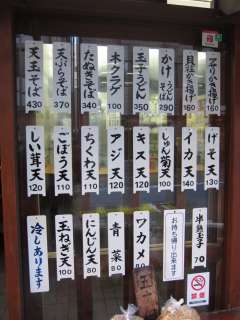 貝柱かき揚げ 160
かけそば 290
玉子うどん 350
木クラゲ 100
たぬきそば 340
天ぷらそば 370
天玉そば 430
げそ天 130
イカ天 140
しゅん菊天 100
キス天 120
アジ天 130
ちくわ天 110
ごぼう天 110
しい茸天 120
半熟玉子 70
お持ち帰り出来ます
ワカメ 80
青菜 80
にんじん天 80
玉ねぎ天 100
冷しあります
禁煙